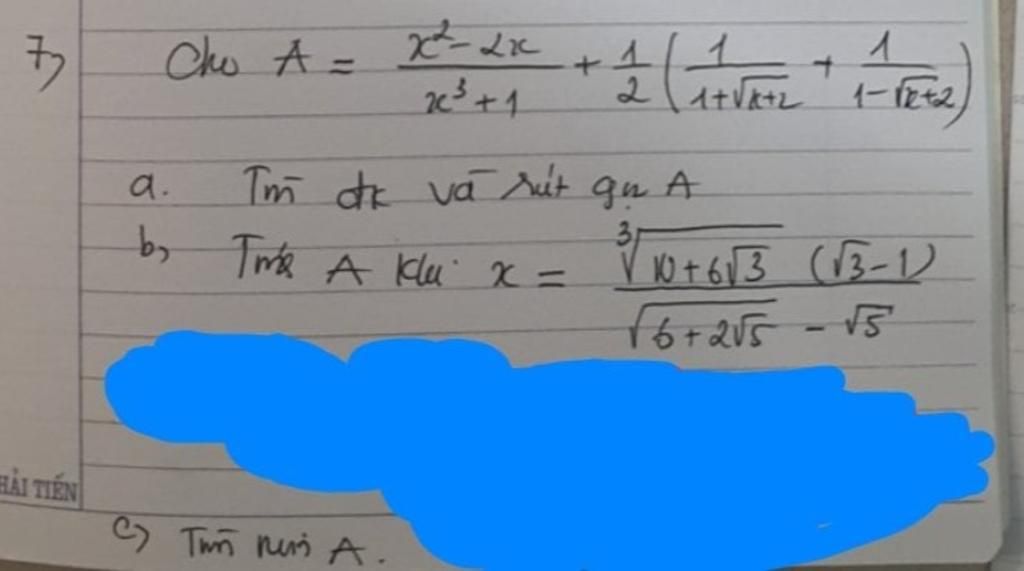 7) Cho A = \frac{x^2 - 2x}{x^3 + 1} + \frac{1}{2} \left( \frac{1}{1+\sqrt{x+2}} + \frac{1}{1-\sqrt{x+2}} \right)
a. Tìm đk và rút gọn A
b, Tính A khi x = \frac{\sqrt[3]{10+6\sqrt{3}} (\sqrt{3}-1)}{\sqrt{6+2\sqrt{5}} - \sqrt{5}}
HẢI TIẾN
c) Tìm min A.